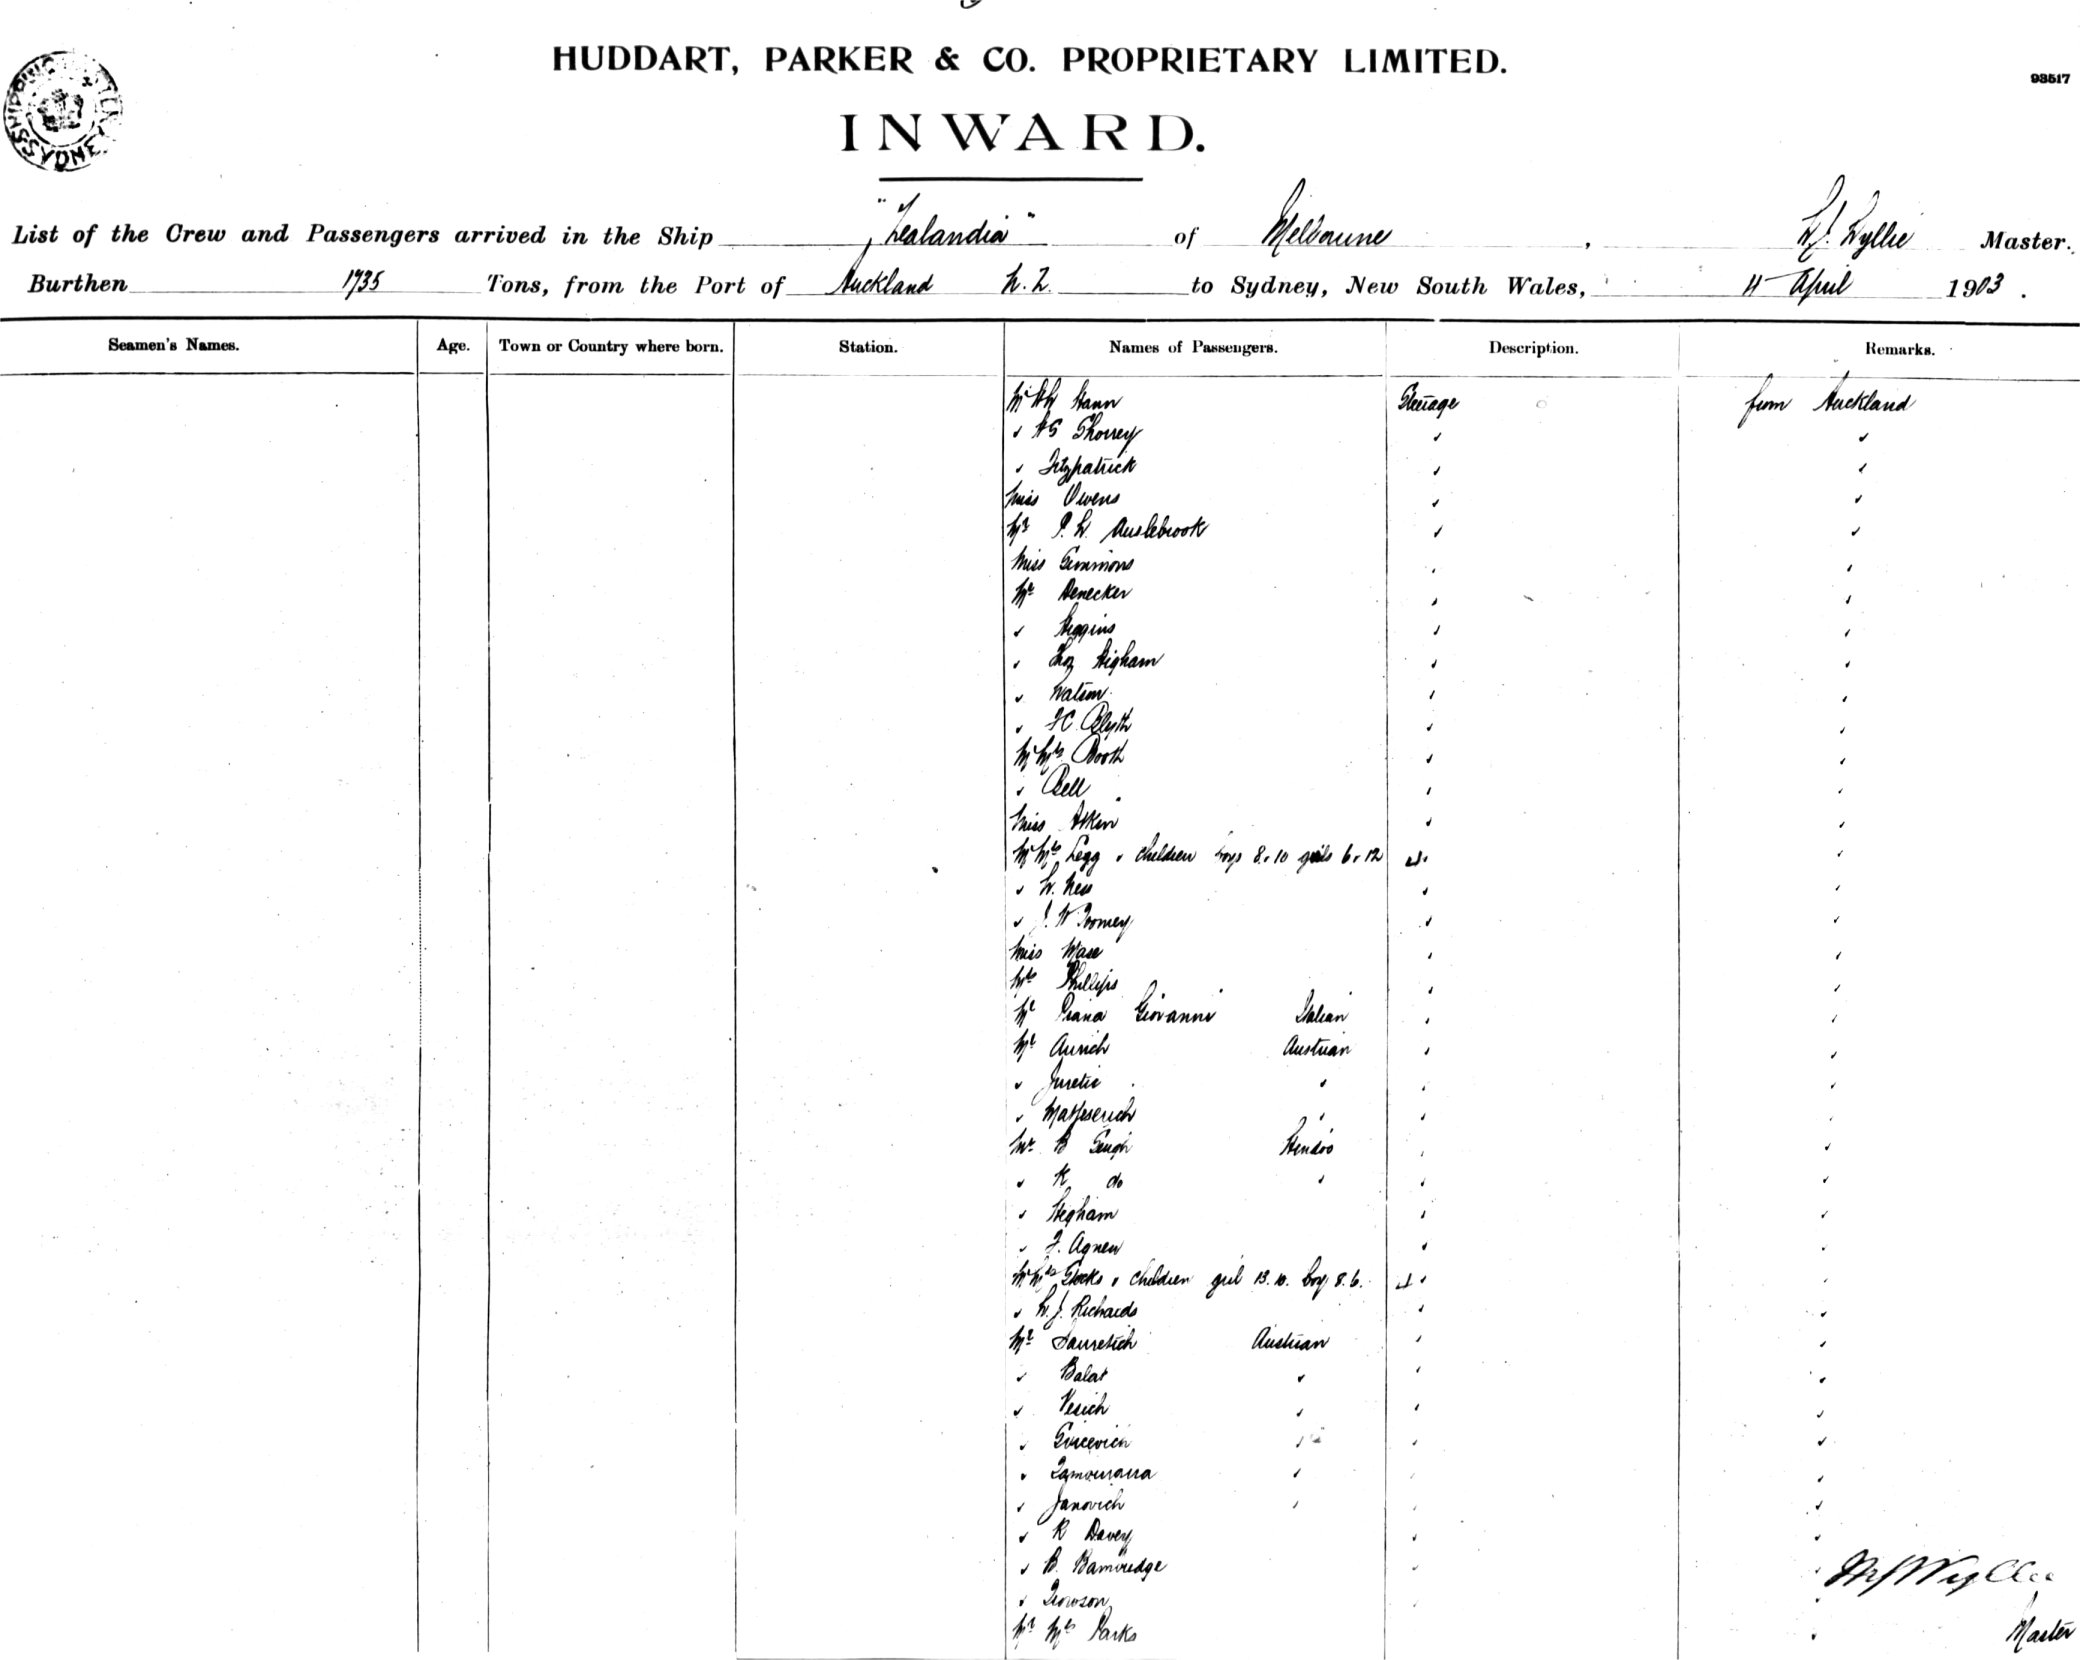 HUDDART, PARKER & CO. PROPRIETARY LIMITED.
93517
SHIPPING SYDNEY
INWARD.
List of the Crew and Passengers arrived in the Ship "Zealandia" of Melbourne, W. J. Wyllie Master.
Burthen 1735 Tons, from the Port of Auckland N.Z. to Sydney, New South Wales, 4 April 1903.
Seamen's Names. Age. Town or Country where born. Station. Names of Passengers. Description. Remarks.
Mr Hann Steerage from Auckland
" Thorrey " "
" Fitzpatrick " "
Miss Owens " "
Mr P. W. Auslebrook " "
Miss Simmons " "
Mr Denecker " "
" Higgins " "
" Higham " "
" Watson " "
" Blyth " "
Mr Mrs Booth " "
" Bell " "
Miss Aiken " "
Mr Mrs Legg & children boys 8 & 10 girls 6 & 12 " "
" W. Ness " "
" J. W. Toomey " "
Miss Wase " "
Mrs Phillips " "
Mr Piana Giovanni Italian " "
Mr Aurich Austrian " "
" Juretic " " "
" " " "
Mr B Singh Hindoo " "
" K do " " "
" Higham " "
" F. Agnew " "
Mr Mrs Stocks & children girl 13. 10. boy 8. 6. 4 " "
" W. J. Richards " "
Mr Austrian " "
" Balat " " "
" Vesich " " "
" " " "
" " " "
" Janovich " " "
" R Davey " "
" B. Bambridge " " W J Wyllie
" Trowson " "
Mr Mrs Parks " Master